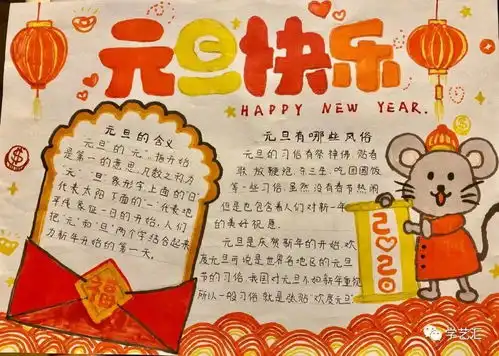 元旦快乐
HAPPY NEW YEAR.
元旦的含义
元旦的"元",指开始
是第一的意思,凡数之初为
"元","旦"象形字上面的"日"
代表太阳下面的"一"代表地
平线象征一日的开始,人们
把"元"和"旦"两个字结合起来
为新年开始的第一天。
福
元旦有哪些风俗
元旦的习俗有祭神佛、贴春
联、放鞭炮、杀三生、吃团圆饭
等一些习俗,虽然没有春节热闹
但是也包含着人们对新一年
的美好祝愿。
元旦是庆贺新年的开始,欢
度元旦可说是世界各地区的元旦
节的习俗,我国对元旦不如新年重视
所以一般习俗就是张贴"欢度元旦
2020
学艺汇